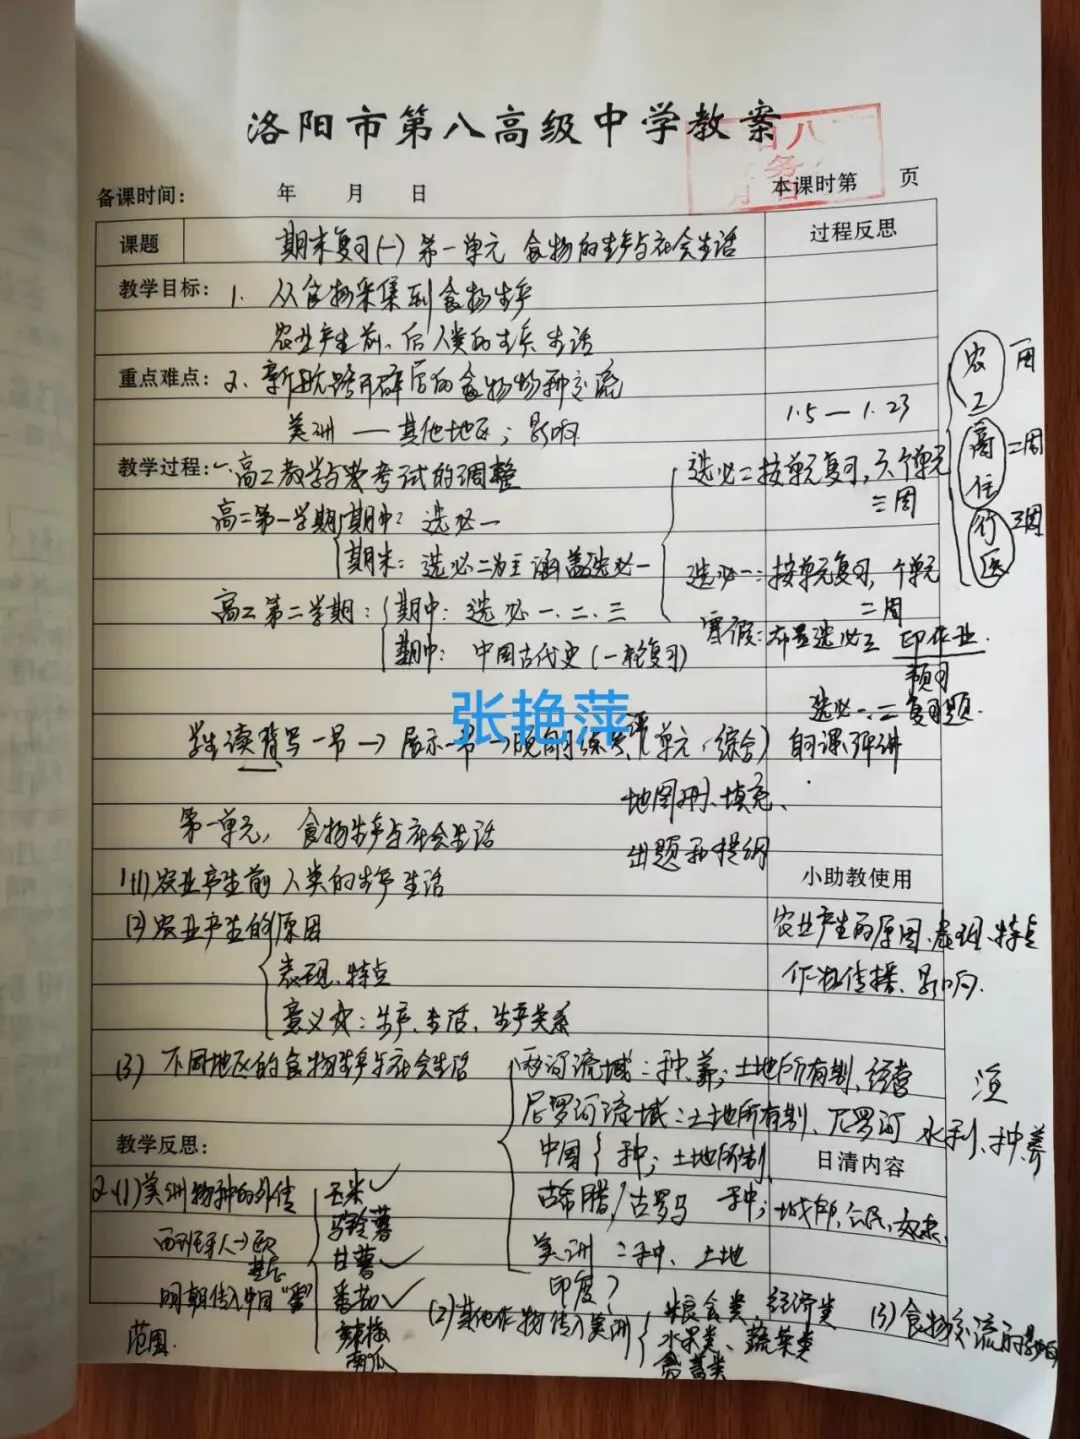 洛阳市第八高级中学教案
备课时间： 年 月 日 本课时第 页
课题 期末复习(一) 第一单元 食物的生产与社会生活 过程反思
教学目标： 1. 从食物采集到食物生产
农业产生前、后人类的生产、生活
重点难点： 2、新航路开辟后的食物物种交流
美洲 — 其他地区；影响
1.5 — 1.23
农 一周
工
商 二周
住
行 三周
医
教学过程： 一、高二教学与考试的调整
高二第一学期 期中：选必一
期末：选必二为主 涵盖选必一
选必二按单元复习，六个单元
三周
选必一：按单元复习， 个单元
二周
高二第二学期： 期中：选必一、二、三
期中： 中国古代史（一轮复习）
寒假：布置选必三 印作业.
预习
选必一、二复习题.
张艳萍
学生读背写一节 → 展示一节 → 晚自习练 单元、综合） 自课评讲
地图册、填充、
出题和提纲
第一单元， 食物生产与社会生活
1(1)农业产生前 人类的生产 生活
小助教使用
(2)农业产生的 原因
表现、特点
意义：生产、生活、生产关系
农业产生的原因、表现、特点
作物传播、影响.
(3) 不同地区的食物生产与社会生活
两河流域：种、养；土地所有制、经营
尼罗河流域：土地所有制、尼罗河 水利、种、养
中国 种；土地所制
古希腊/古罗马 种；城邦，公民，奴隶
美洲：种、土地
印度？
教学反思：
日清内容
2.(1)美洲物种的外传
玉米
马铃薯
甘薯
番茄
辣椒
南瓜
西班牙人→欧
明朝传入中国“番”
范围.
(2)其他作物传入美洲
粮食类、经济类
水果类、蔬菜类
禽畜类
(3)食物交流的影响